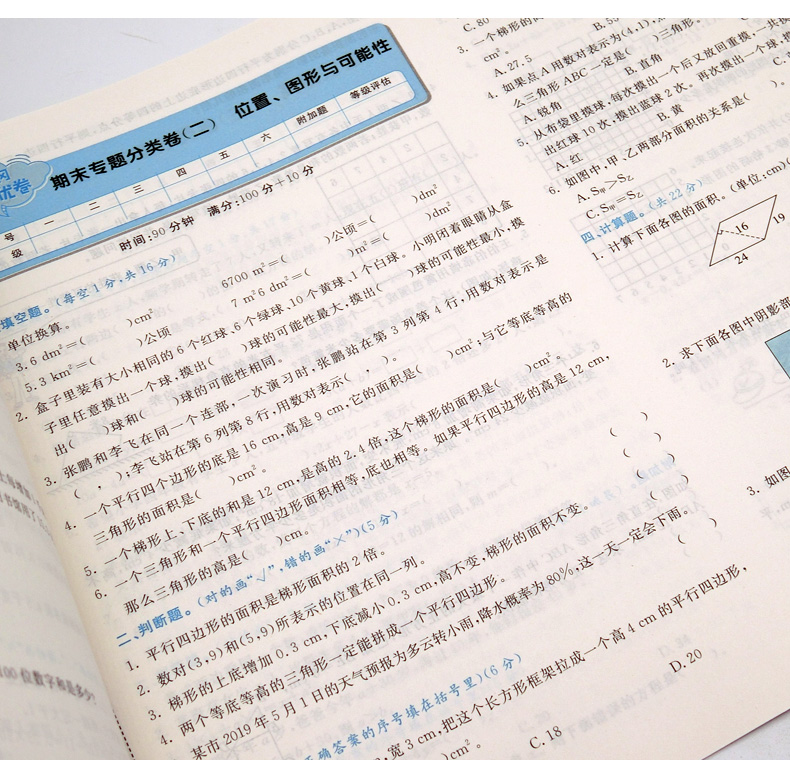 优卷
期末专题分类卷(二) 位置、图形与可能性
号 一 二 三 四 五 六 附加题 等级评估
级
时间:90 分钟 满分:100 分+10 分
填空题。(每空 1 分,共 16 分)
单位换算。
3.6 dm²=( )cm² 6700 m²=( )公顷=( )dm²
5.3 km²=( )公顷 7 m²6 dm²=( )m²=( )dm²
2. 盒子里装有大小相同的 6 个红球、6 个绿球、10 个黄球、1 个白球。小明闭着眼睛从盒
子里任意摸出一个球,摸出( )球的可能性最大,摸出( )球的可能性最小,摸
出( )球和( )球的可能性相同。
3. 张鹏和李飞在同一个连部,一次演习时,张鹏站在第 3 列第 4 行,用数对表示是
( , );李飞站在第 6 列第 8 行,用数对表示( , )。
4. 一个平行四个边形的底是 16 cm,高是 9 cm,它的面积是( )cm²;与它等底等高的
三角形的面积是( )cm²。
5. 一个梯形上、下底的和是 12 cm,是高的 2.4 倍,这个梯形的面积是( )cm²。
6. 一个三角形和一个平行四边形面积相等,底也相等。如果平行四边形的高是 12 cm,
那么三角形的高是( )cm。
二、判断题。(对的画“√”,错的画“×”)(5 分)
1. 平行四边形的面积是梯形面积的 2 倍。 ( )
2. 数对(3,9)和(5,9)所表示的位置在同一列。 ( )
3. 梯形的上底增加 0.3 cm,下底减小 0.3 cm,高不变,梯形的面积不变。 ( )
4. 两个等底等高的三角形一定能拼成一个平行四边形。 ( )
某市 2019 年 5 月 1 日的天气预报为多云转小雨,降水概率为 80%,这一天一定会下雨。 ( )
正确答案的序号填在括号里)(6 分)
,宽 3 cm,把这个长方形框架拉成一个高 4 cm 的平行四边形,
)cm²。
C. 18 D. 20
C. 80
3. 一个梯形的
cm²。
A. 27.5 B. 55
4. 如果点 A 用数对表示为(4,1),
么三角形 ABC 一定是( )三角形。
A. 锐角 B. 直角
5. 从布袋里摸球,每次摸出一个后又放回重摸,一共摸
出红球 10 次,摸出蓝球 2 次。再次摸出一个球,摸
A. 红 B. 黄
6. 如图中,甲、乙两部分面积的关系是( )。
A. S甲>S乙
C. S甲=S乙
四、计算题。(共 22 分)
1. 计算下面各图的面积。(单位:cm)(
16
19
24
2. 求下面各图中阴影部
3. 如图
100 位数字和是多少?